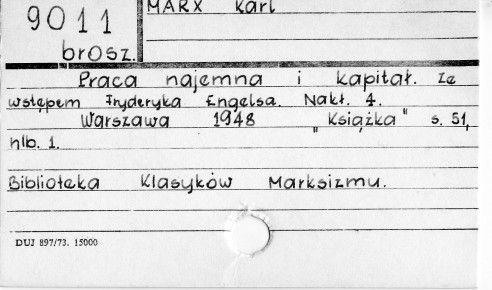 9011
brosz.
MARX Karl
Praca najemna i kapitał. Ze
wstępem Fryderyka Engelsa. Nakł. 4.
Warszawa 1948 "Książka" s. 51,
nlb. 1.
Biblioteka Klasyków Marksizmu.
DUJ 897/73. 15000